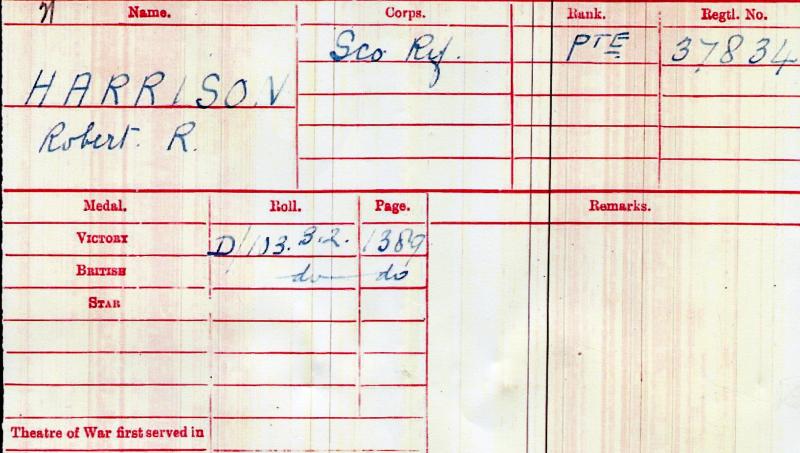 Name. Corps. Rank. Regtl. No.
Sco Rif. PTE 37834
HARRISON
Robert. R.
Medal. Roll. Page. Remarks.
VICTORY D/103.B.2. 1389
BRITISH do do
STAR
Theatre of War first served in